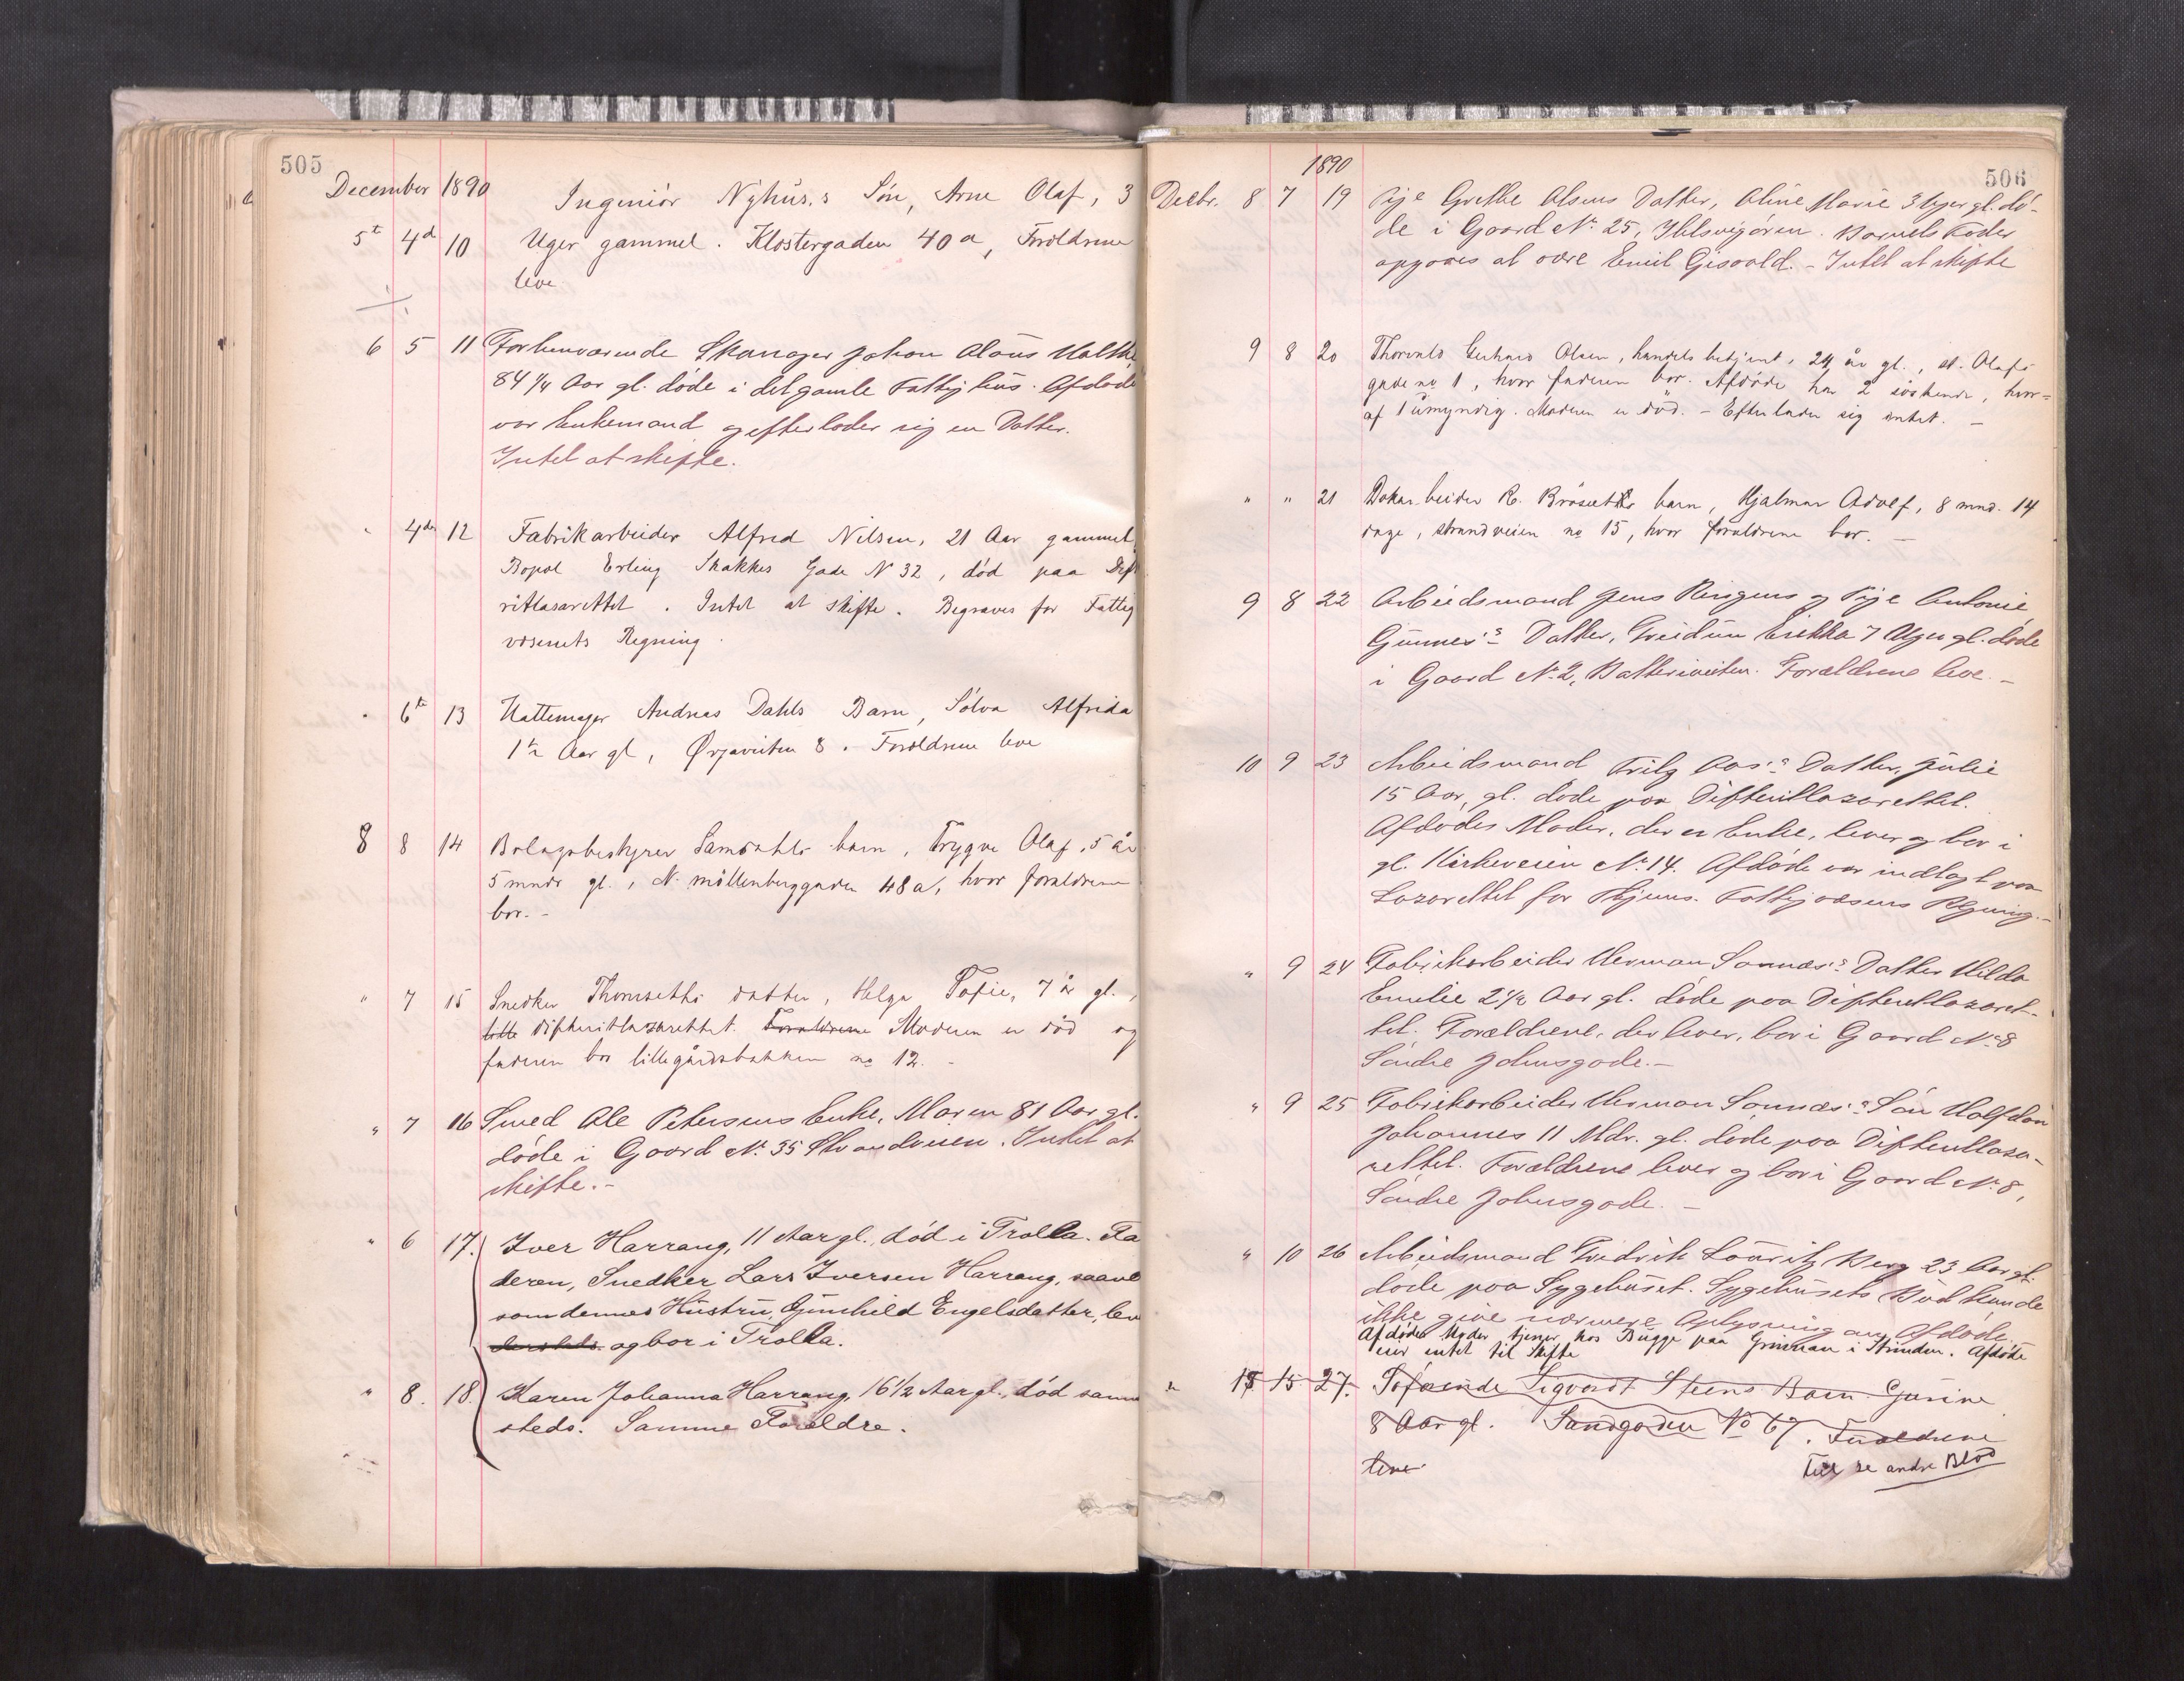 505
December 1890
Ingeniör Nyhus's Sön, Arne Olaf, 3
5te 4de 10 Uger gammel. Klostergaden 40a, Forældrene
leve
6 5 11 Forhenværende Skomager Johan Alaus
84 1/4 Aar gl. døde i det gamle Fattighus. Afdøde
var Enkemand og efterlader sig en Datter.
Intet at skifte.
" 4de 12 Fabrikarbeider Alfred Nilsen, 21 Aar gammel
Bopæl Erling Skakkes Gade N 32, död paa Dift
ritlasarettet. Intet at skifte. Begraves for Fattig
væsenets Regning.
" 6te 13 Hattemager Andreas Dahls Barn, Sólva Alfrida
1 1/2 Aar gl, Ørjaveiten 8. Forældrene leve
8 8 14 Bolagsbestyrer Samdahls barn, Trygve Olaf, 5 år
5 mndr gl., N. möllenberggaden 48a, hvor forældrene
bor. -
" 7 15 Snedker Thomseths datter, Helga Sofie, 7 år gl.,
difteritlazarettet. Forældrene Moderen er död og
faderen bor lillegårdsbakken no 12. -
" 7 16 Smed Ole Petersens Enke, Maren 81 Aar gl.
døde i Gaard No 35 Strandveien. Intet at
skifte. -
" 6 17. Iver Harrang, 11 Aar gl., död i Trolla. Fa
deren, Snedker Lars Iversen Harrang, saavel
som dennes Hustru, Gunhild Engelsdatter, lev
dersteds. og bor i Trolla.
" 8. 18. Karen Johanna Harrang, 16 1/2 Aar gl., död samme
steds. Samme Forældre.
506
1890
Decbr. 8 7 19 Pige Grethe Olsens Datter, Oline Marie 3 Uger gl. dö-
de i Gaard No 25, Ihlsvigören. Barnets Fader
opgives at være Emil Gisvold. - Intet at skifte
9 8 20 Thorvald Gerhard Olsen, handelsbetjent, 24 år gl., st. Olafs
gade no 1, hvor faderen bor. Afdöde har 2 söskende, hvor=
af 1 umyndig. Moderen er död. - Efterlader sig intet. -
" " 21 Dokarbeider R. Bröseths barn, Hjalmar Adolf, 8 mnd. 14
dage, strandveien no 15, hvor forældrene bor. -
9 8 22 Arbeidsmand Jens Ringens og Pige Antonie
Gunnes's Datter, Gudrun Erikka 7 Uger gl. døde
i Gaard No 2, Batteriveiten. Forældrene leve. -
10 9 23 Arbeidsmand Fritz Aas's Datter, Julie
15 Aar, gl. døde paa Difteritlazarettet.
Afdødes Moder, der er Enke, lever og bor i
gl. Kirkeveien No 14. Afdøde var indlagt paa
Lazarettet for Thjems. Fattigvæsens Regning. -
" 9 24 Fabrikarbeider Herman Sonnæs's Datter Hilda
Emilie 2 1/2 Aar gl. døde paa Difteritlazaret-
tet. Forældrene, der lever, bor i Gaard No 8
Søndre Johnsgade. -
" 9 25 Fabrikarbeider Herman Sonnæs's Søn Halfdan
Johannes 11 Mdr. gl. døde paa Difteritlaza-
rettet. Forældrene lever og bor i Gaard No 8,
Søndre Johnsgade. -
" 10 26 Arbeidsmand Fredrik Lauritz Berg 23 Aar gl.
døde paa Sygehuset. Sygehusets Bud kunde
ikke give nærmere Oplysning om Afdøde.
Afdödes Moder tjener hos Bugge paa i Strinden. Afdöde
eier intet til Skifte
" 15 15 27. Söfarende Sigvardt Steens Barn Gurine
8 Aar gl. Sandgaden No 67. Forældrene
leve.
till se andre Blad